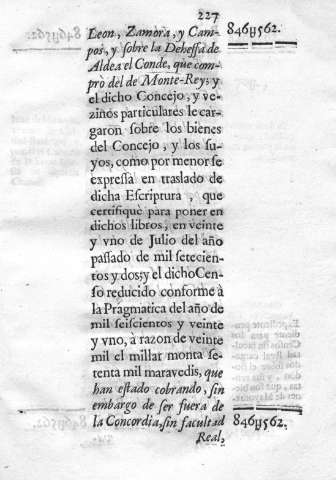 227
Leon, Zamora, y Cam-
pos, y sobre la Dehessa de
Aldea el Conde, que com-
prò del de Monte-Rey; y
el dicho Concejo, y ve-
zinos particulares le car-
garon sobre los bienes
del Concejo, y los su-
yos, como por menor se
expressa en traslado de
dicha Escriptura, que
certifiquè para poner en
dichos libros, en veinte
y vno de Julio del año
passado de mil setecien-
tos y dos; y el dicho Cen-
so reducido conforme à
la Pragmatica del año de
mil seiscientos y veinte
y vno, à razon de veinte
mil el millar monta se-
tenta mil maravedis, que
han estado cobrando, sin
embargo de ser fuera de
la Concordia, sin facultad
Real,
846y562.
846y562.